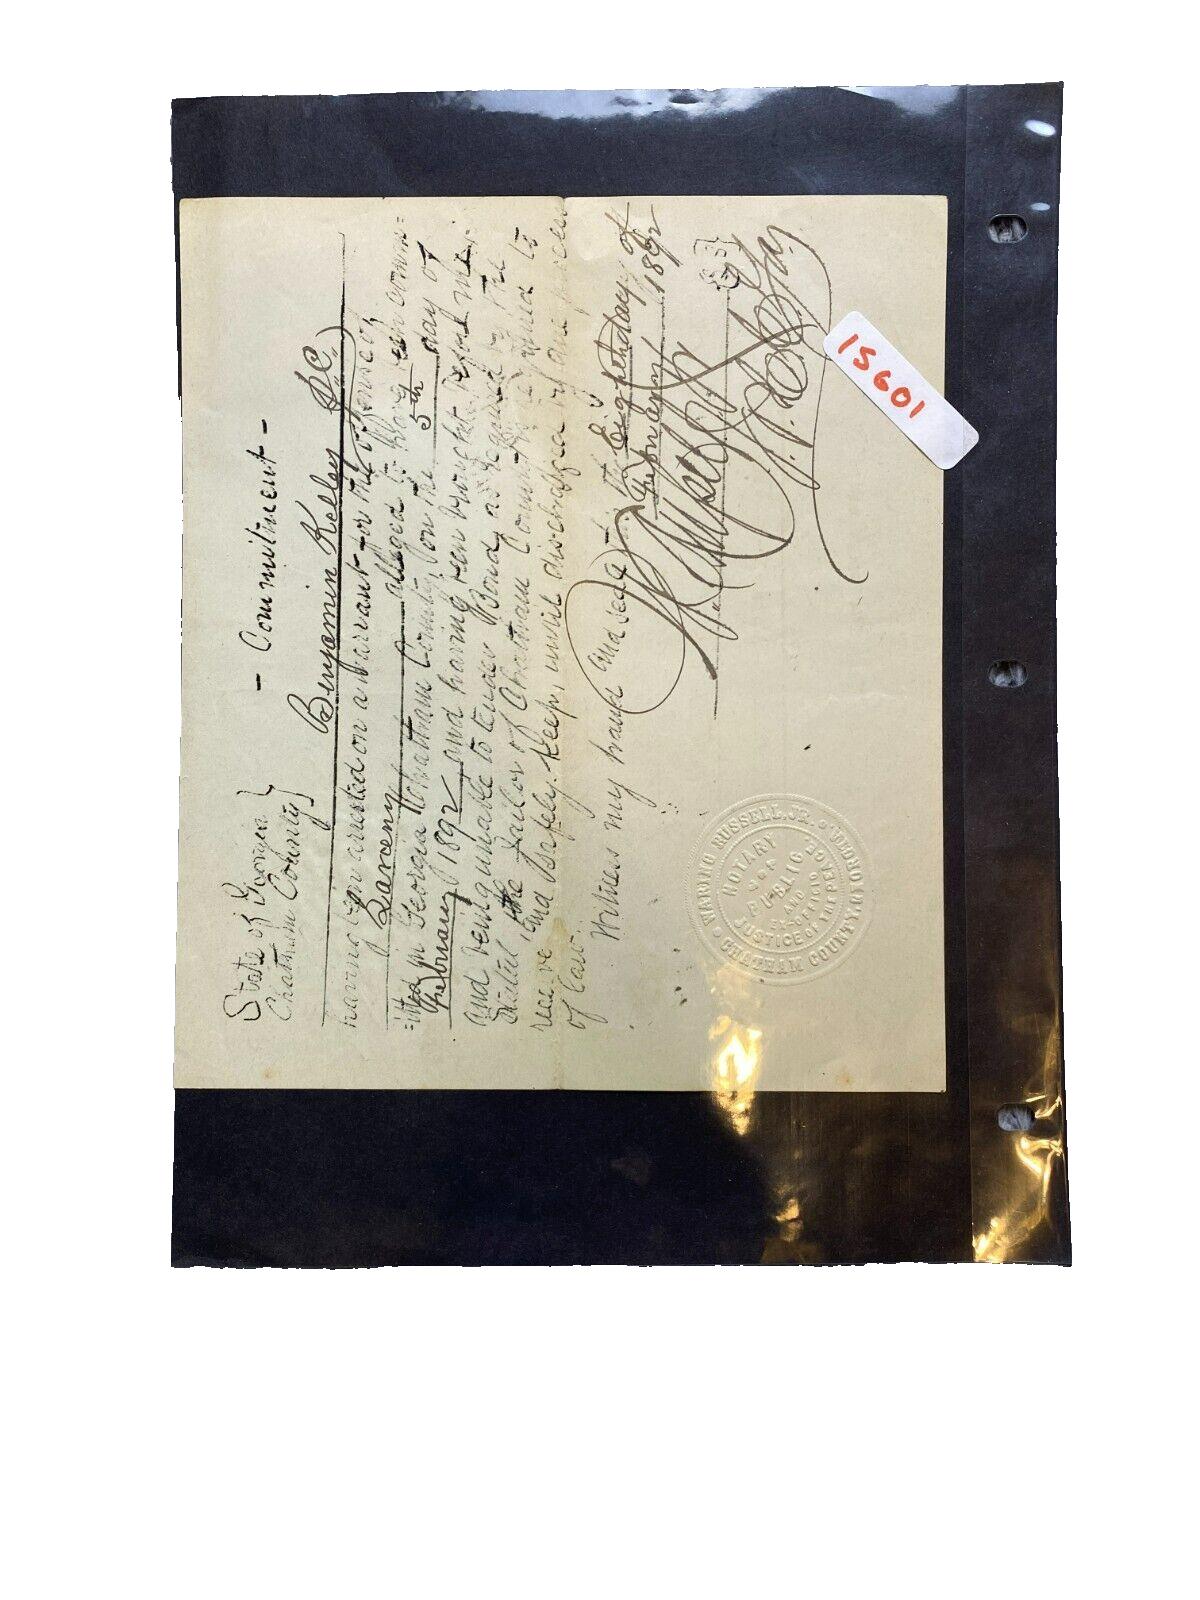 State of Georgia }
Chatham County }
- Commitment -
Benjamin Kelley
having been arrested on a warrant for the offence of
Larceny alleged to have been comm=
=itted in Georgia Chatham County on the 5th day of
February 1892 and having been brought before me:
and being unable to tender Bond, as required by the
the Jailor of Chatham County is required to
receive and safely keep, until discharged by due process
of law.
Witness my hand and seal this Eighth day of
February 1892
Waring Russell Jr
WARING RUSSELL, JR.
CHATHAM COUNTY, GEORGIA
NOTARY PUBLIC
AND
EX-OFFICIO
JUSTICE OF THE PEACE
15601